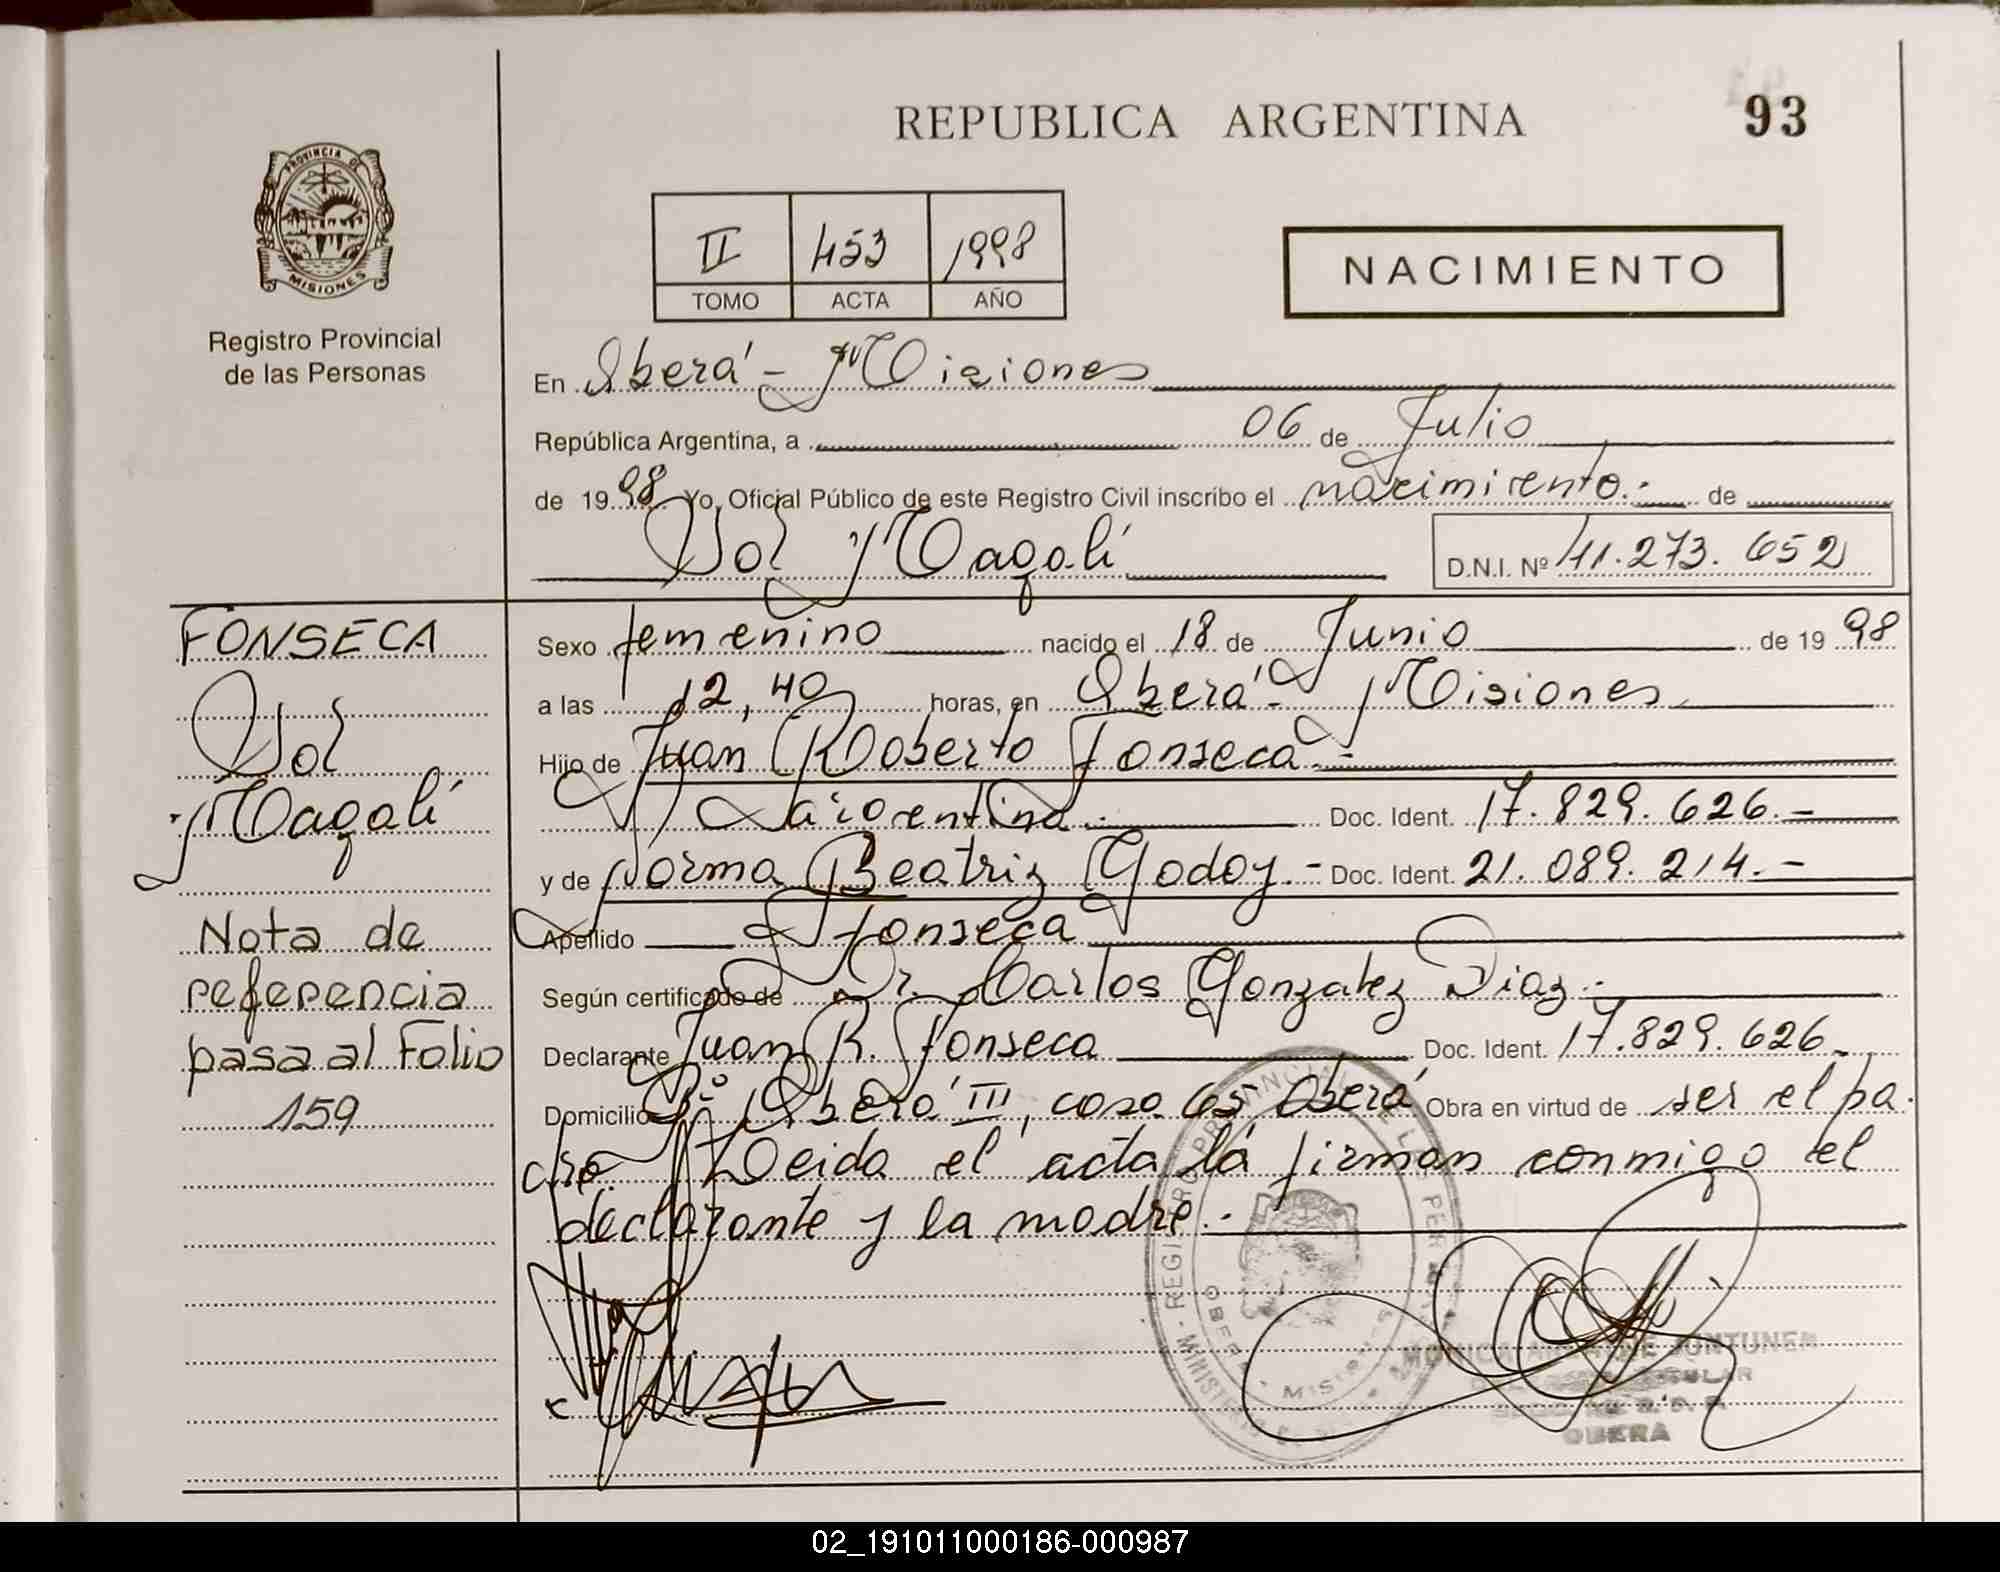 REPUBLICA ARGENTINA
93
PROVINCIA DE
MISIONES
Registro Provincial
de las Personas
II 453 1998
TOMO ACTA AÑO
NACIMIENTO
En Oberá - Misiones
República Argentina, a 06 de Julio
de 1998 Yo, Oficial Público de este Registro Civil inscribo el nacimiento.- de
Sol Magalí
D.N.I. Nº 41.273.652
FONSECA
Sol
Magalí
Nota de
referencia
pasa al Folio
159
Sexo femenino nacido el 18 de Junio de 1998
a las 12,40 horas, en Oberá - Misiones
Hijo de Juan Roberto Fonseca.-
Doc. Ident. 17.829.626.-
y de Norma Beatriz Godoy.- Doc. Ident. 21.089.214.-
Apellido Fonseca
Según certificado de Dr. Carlos Gonzalez Diaz.-
Declarante Juan R. Fonseca Doc. Ident. 17.829.626.
Domicilio Bº Oberá III, casa 65 Oberá Obra en virtud de ser el pa.
dre. Leida el acta la firman conmigo el
declarante y la madre.-
OBERA
MISIONES
OBERA
02_191011000186-000987